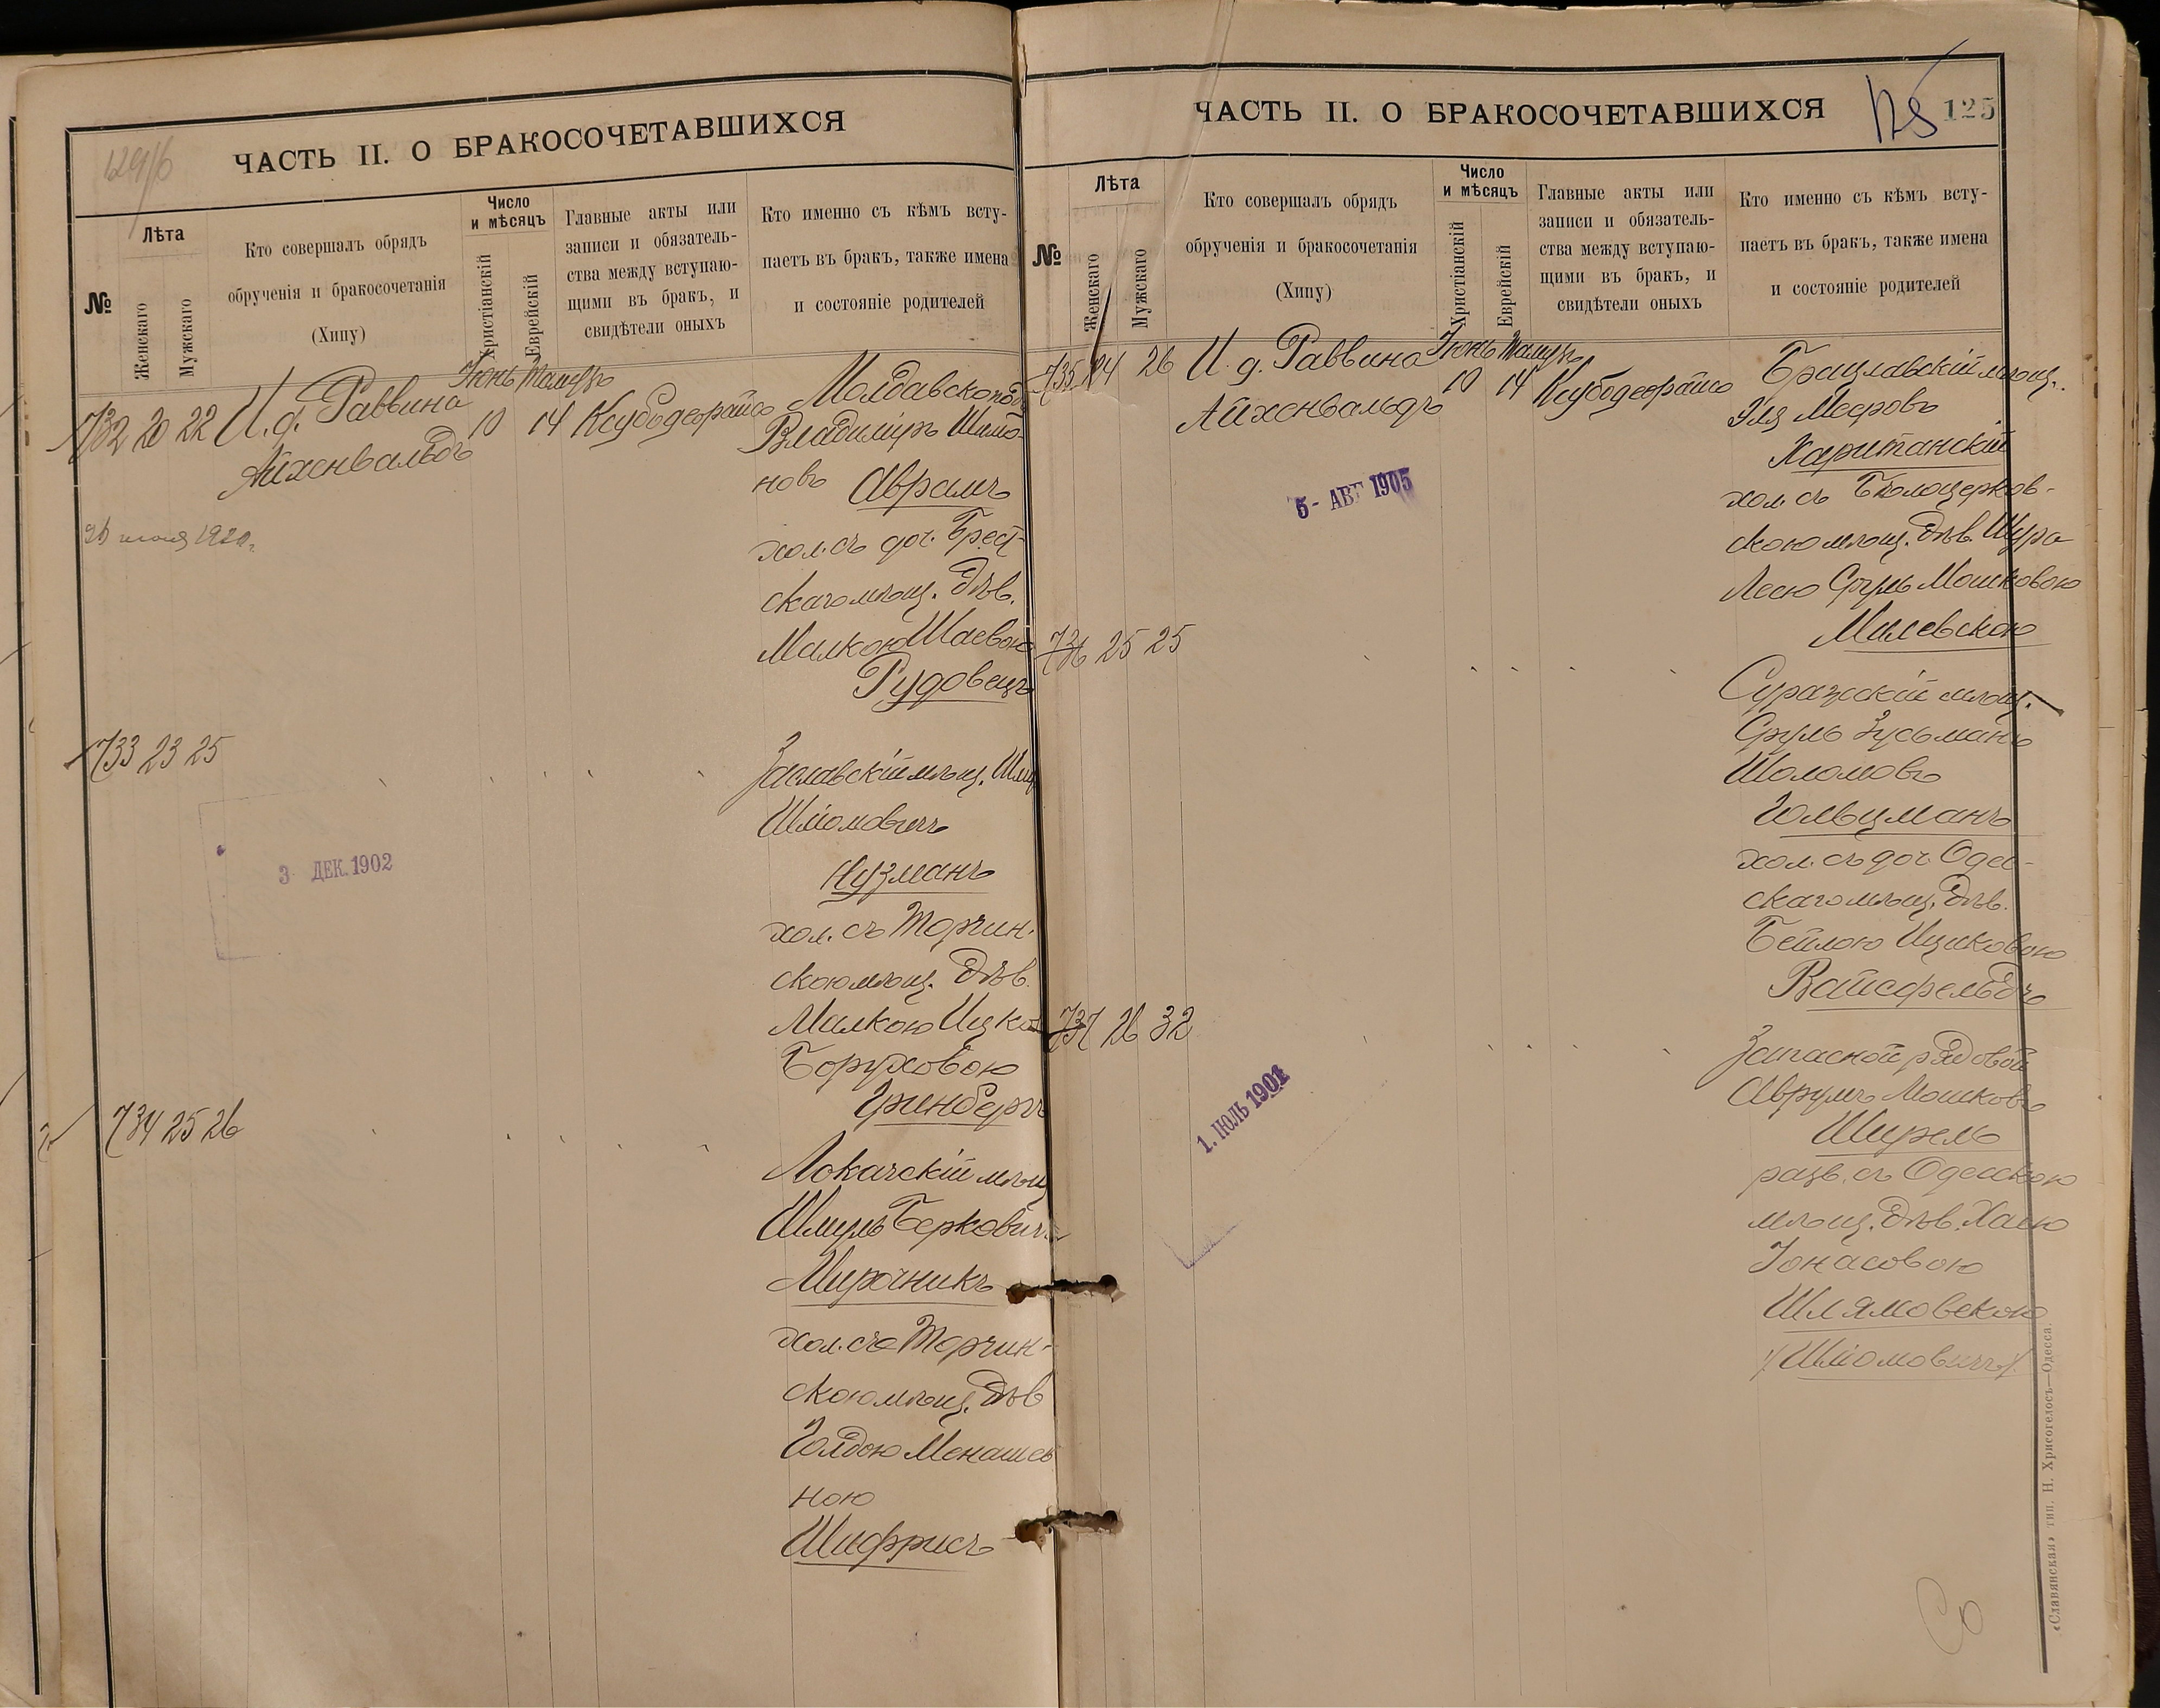 ЧАСТЬ II. О БРАКОСОЧЕТАВШИХСЯ
№
Лѣта
Женскаго
Мужскаго
Кто совершалъ обрядъ
обрученія и бракосочетанія
(Хипу)
Число
и мѣсяцъ
Христіанскій
Еврейскій
Главные акты или
записи и обязатель-
ства между вступаю-
щими въ бракъ, и
свидѣтели оныхъ
Кто именно съ кѣмъ всту-
паетъ въ бракъ, также имена
и состояніе родителей
732 20 22 И. д. Раввина
Айхенвальдъ
Іюнь Тамузъ
10 14
Владиміръ Шимо-
новъ Аврамъ
хол. съ доч. Брест-
скаго мѣщ. дѣв.
Малкою Шаевою
Рудовецъ
733 23 25
Заславскій мѣщ.
Шліомовичъ
Нузманъ
хол. съ Торчин-
скою мѣщ. дѣв.
Малкою Ицко
Боруховою
Гринбергъ
3 ДЕК. 1902
734 25 26
Локачскій мѣщ
Шмуль Берковичъ
Мирочникъ
хол. съ Торчин-
скою мѣщ. дѣв
Голдою Менашев
ною
Шифрисъ
ЧАСТЬ II. О БРАКОСОЧЕТАВШИХСЯ
125
125
№
Лѣта
Женскаго
Мужскаго
Кто совершалъ обрядъ
обрученія и бракосочетанія
(Хипу)
Число
и мѣсяцъ
Христіанскій
Еврейскій
Главные акты или
записи и обязатель-
ства между вступаю-
щими въ бракъ, и
свидѣтели оныхъ
Кто именно съ кѣмъ всту-
паетъ въ бракъ, также имена
и состояніе родителей
735 24 26 И. д. Раввина
Айхенвальдъ
Іюнь Тамузъ
10 14
Брацлавскій мѣщ.
Эля Мееровъ
Хаританскій
хол. съ Бѣлоцерков-
скою мѣщ. дѣв. Шура
Леею Сруль Мошковою
Милевскою
5 - АВГ 1905
736 25 25
Суражскій мѣщ.
Сруль Зусьманъ
Шоломовъ
Гольцманъ
хол. съ доч. Одес-
скаго мѣщ. дѣв.
Бейлою Ицковою
Вайсфельдъ
737 26 32
Запасной рядовой
Аврумъ Мошковъ
Ширель
разв. съ Одесскою
мѣщ. дѣв. Хаею
Іонасовою
Шлямовскою
/Шліомовичъ/
«Славянская» тип. Н. Хрисогелосъ—Одесса.